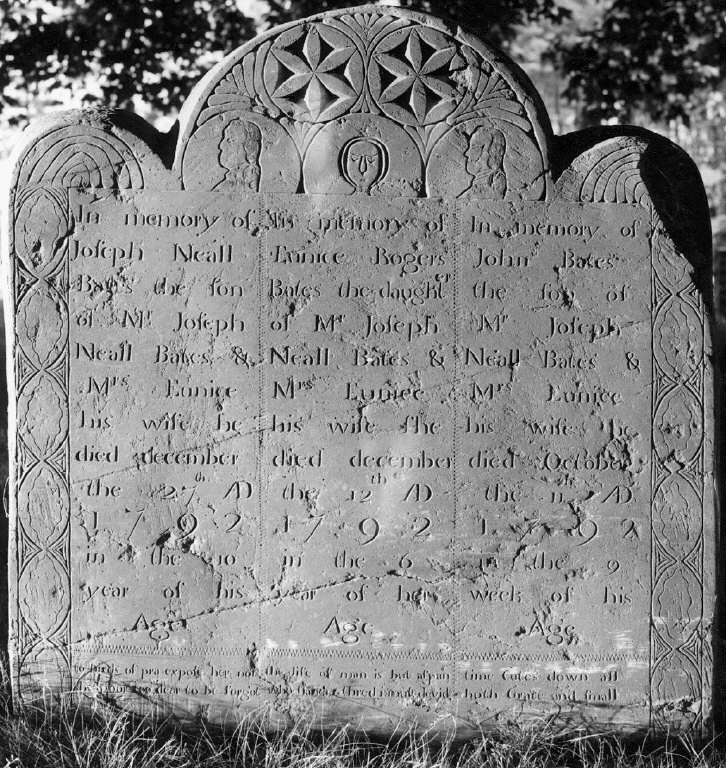 In memory of
Joseph Neall
Bates the son
of Mr Joseph
Neall Bates &
Mrs Eunice
his wife he
died december
the 27th AD
1792
in the 10
year of his
Age
In memory of
Eunice Rogers
Bates the daughter
of Mr Joseph
Neall Bates &
Mrs Eunice
his wife she
died december
the 12th AD
1792
in the 6
year of her
Age
In memory of
John Bates
the son of
Mr Joseph
Neall Bates &
Mrs Eunice
his wife he
died October
the 11th AD
1792
in the 9
week of his
Age
birds of pra expose her not
dear to be forgot
the life of man is but a span
who's slander thred is
time cutes down all
both Grate and small